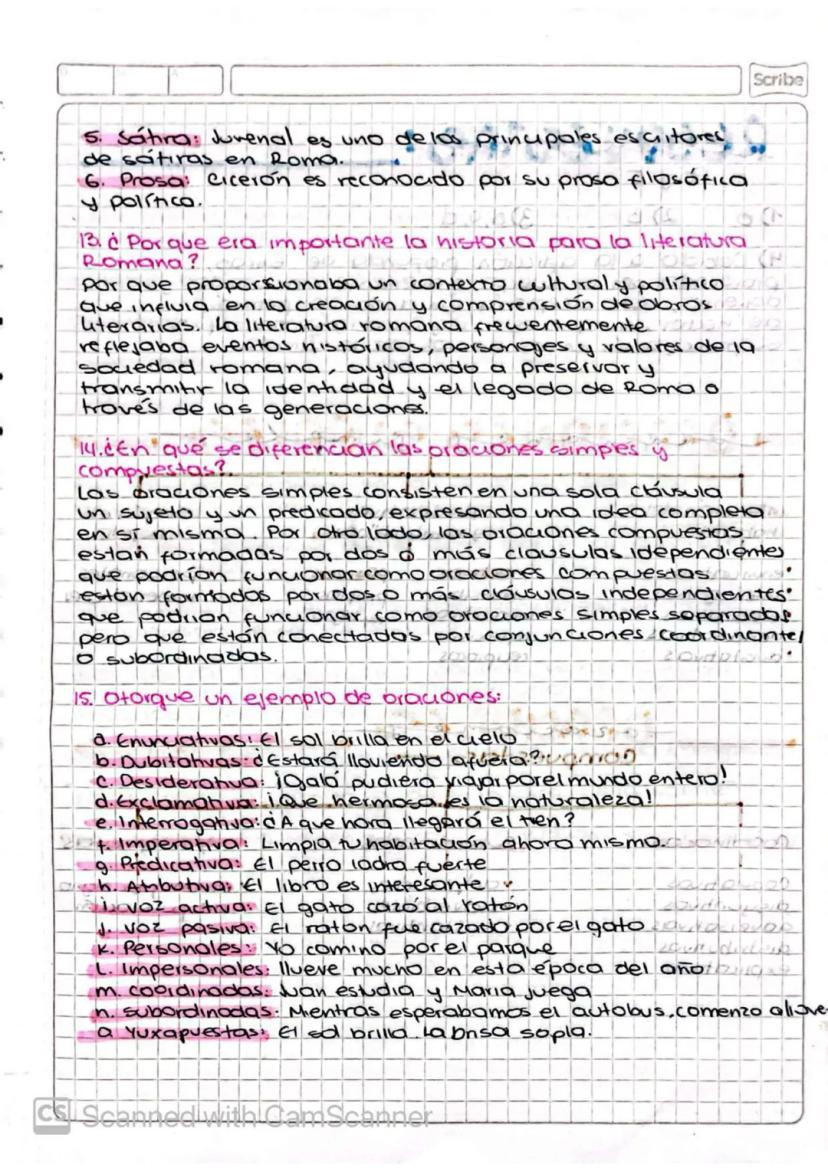 Scribe
5. Sátira: Juvenal es uno de los principales escritores
de sátiras en Roma.
6. Prosa: Cicerón es reconocido por su prosa filosófica
y política.
13. ¿Por que era importante la historia para la literatura
Romana?
Por que proporsionaba un contexto cultural y político
que influia en la creación y comprensión de obras
literarias. La literatura romana frecuentemente
reflejaba eventos históricos, personajes y valores de la
sociedad romana, ayudando a preservar y
transmitir la identidad y el legado de Roma a
través de las generaciones.
14. ¿En qué se diferencian las oraciones simples y
compuestas?
Las oraciones simples consisten en una sola cláusula
un sujeto y un predicado, expresando una idea completa
en sí misma. Por otro lado, las oraciones compuestas
están formadas por dos ó más clausulas idependientes
que podrían funcionar como oraciones compuestas
están formados por dos o más cláusulas independientes
que podrian funcionar como oraciones simples separadas
pero que están conectados por conjunciones coordinante
o subordinadas.
15. Otorque un ejemplo de oraciones:
a. Enunciativas: El sol brilla en el cielo
b. Dubitativas: ¿Estará lloviendo afuera?
c. Desiderativa: ¡Ojalá pudiera viajar por el mundo entero!
d. Exclamativa: ¡Que hermosa es la naturaleza!
e. Interrogativa: ¿A que hora llegará el tren?
f. Imperativa: Limpia tu habitación ahora mismo.
g. Predicativa: El perro ladra fuerte
h. Atributiva: El libro es interesante
i. voz activa: El gato cazó al ratón
j. voz pasiva: El raton fue cazado por el gato
k. Personales: Yo camino por el parque
l. Impersonales: llueve mucho en esta época del año
m. coordinadas: Juan estudia y Maria juega
n. subordinadas: Mientras esperabamos el autobus, comenzo a llove
o Yuxapuestas: El sol brilla. La brisa sopla.
CS Scanned with CamScanner